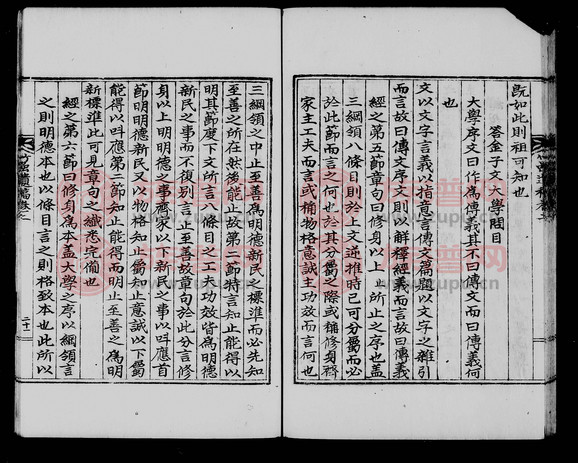 旣如此則祖可知也
答金子文大學問目
大學序文曰作爲傳義其不曰傳文而曰傳義何
也
文以文字言義以指意言傳文猶以文字之雜引
而言故曰傳文序文則以解釋經義而言故曰傳義
經之第五節章句曰以上 上所止之序也盖
三綱領八條目則於上文逆推時已可分屬而必
於此節而言何也其分屬之際或稱修身齊
家主工夫而言或稱物格意誠主功效而言何也
三綱領之中止至善爲明德新民之標準而必先知
至善之所在然後能止故第二節特言知止能得以
明其節度下文所言八條目之工夫功效皆爲明德
新民之事而不復別言止至善故章句於此分言修
身以上明明德之事齊家以下新民之事以呼應首
節明明德新民又以物格知止屬知止意誠以下屬
能得以呼應第二節知止能得而明止至善之爲明
新標準此可見章句之纖悉完備也
經之第六節曰修身爲本盖大學之序以綱領言
之則明德本也以條目言之則格致本也此所以
二十一